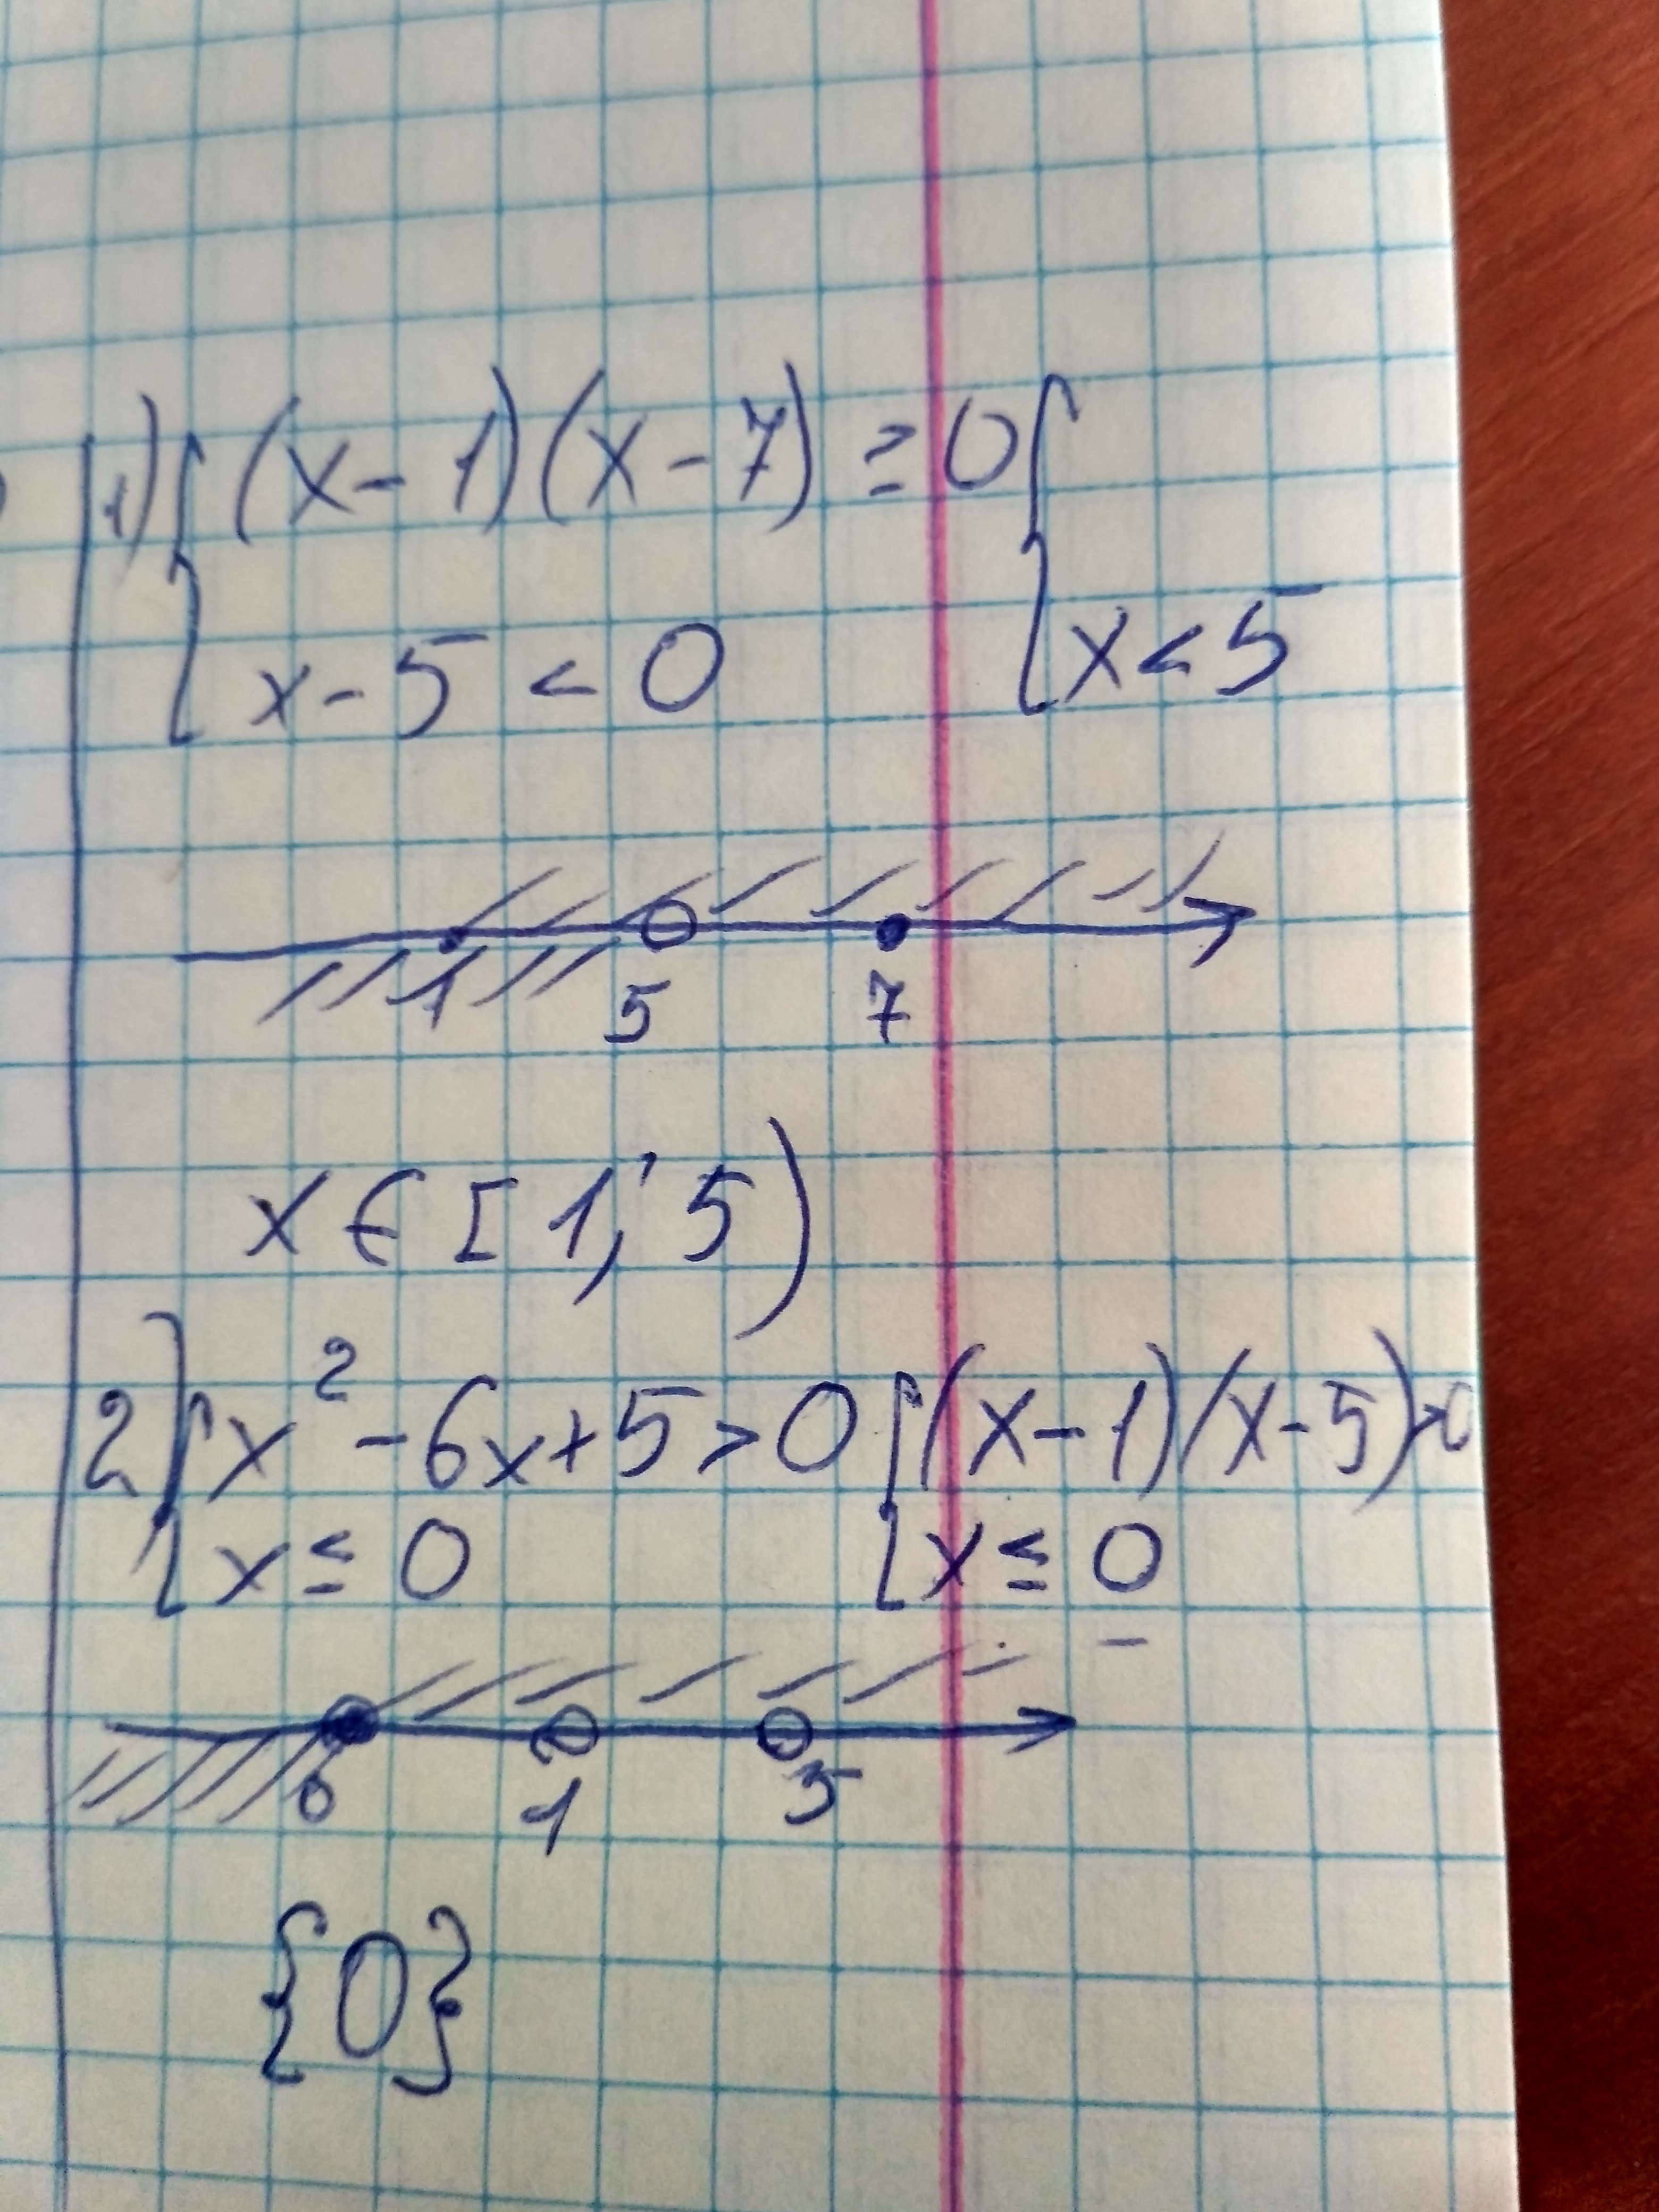 1) { (x-1)(x-7) ≥ 0 {
{ x-5 < 0 { x < 5
1 5 7
x ∈ [1; 5)
2) { x² - 6x + 5 > 0 { (x-1)(x-5) > 0
{ x ≤ 0 { x ≤ 0
0 1 5
{0}